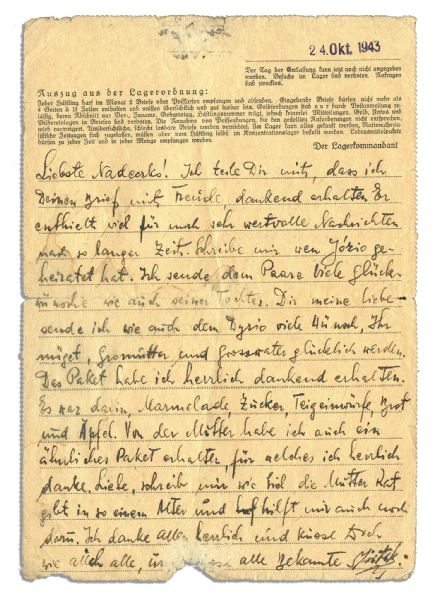 24. Okt. 1943
Der Tag der Entlassung kann jetzt noch nicht angegeben
werden. Besuche im Lager sind verboten. Anfragen
sind zwecklos.
Auszug aus der Lagerordnung:
Jeder Häftling darf im Monat 2 Briefe oder Postkarten empfangen und absenden. Eingehende Briefe dürfen nicht mehr als
4 Seiten à 15 Zeilen enthalten und müssen übersichtlich und gut lesbar sein. Geldsendungen sind nur durch Postanweisung zu-
lässig, deren Abschnitt nur Vor-, Zuname, Geburtstag, Häftlingsnummer trägt, jedoch keinerlei Mitteilungen. Geld, Fotos und
Bildereinlagen in Briefen sind verboten. Die Annahme von Postsendungen, die den gestellten Anforderungen nicht entsprechen,
wird verweigert. Unübersichtliche, schlecht lesbare Briefe werden vernichtet. Im Lager kann alles gekauft werden. Nationalsozia-
listische Zeitungen sind zugelassen, müssen aber vom Häftling selbst im Konzentrationslager bestellt werden. Lebensmittelpakete
dürfen zu jeder Zeit und in jeder Menge empfangen werden.
Der Lagerkommandant
Liebste ! Ich teile Dir mit, dass ich
Deinen Brief mit Freude, dankend erhalten Er
enthielt viel für mich sehr wertvolle Nachrichten
nach so langer Zeit. Schreibe mir wen Józio ge-
heiratet hat. Ich sende dem Paare viele Glück-
wünsche wie auch seiner Tochter. Dir meine liebe
sende ich wie auch dem Dyzio viele Wünsch, Ihr
möget, Gromutter und grosswater glücklich werden.
Das Paket habe ich herrlich dankend erhalten.
Es war darin, Marmelade, Zucker, Brot
und Äpfel. Von der Mutter habe ich auch ein
ähnliches Paket erhalten, für welches ich herrlich
danke. Liebe, schreibe mir wie die Mutter Rat
gibt in so einem Alter und hilft mir auch noch
dazu. Ich danke allen herrlich und küsse Dich
wie auch alle, alle Bekannte